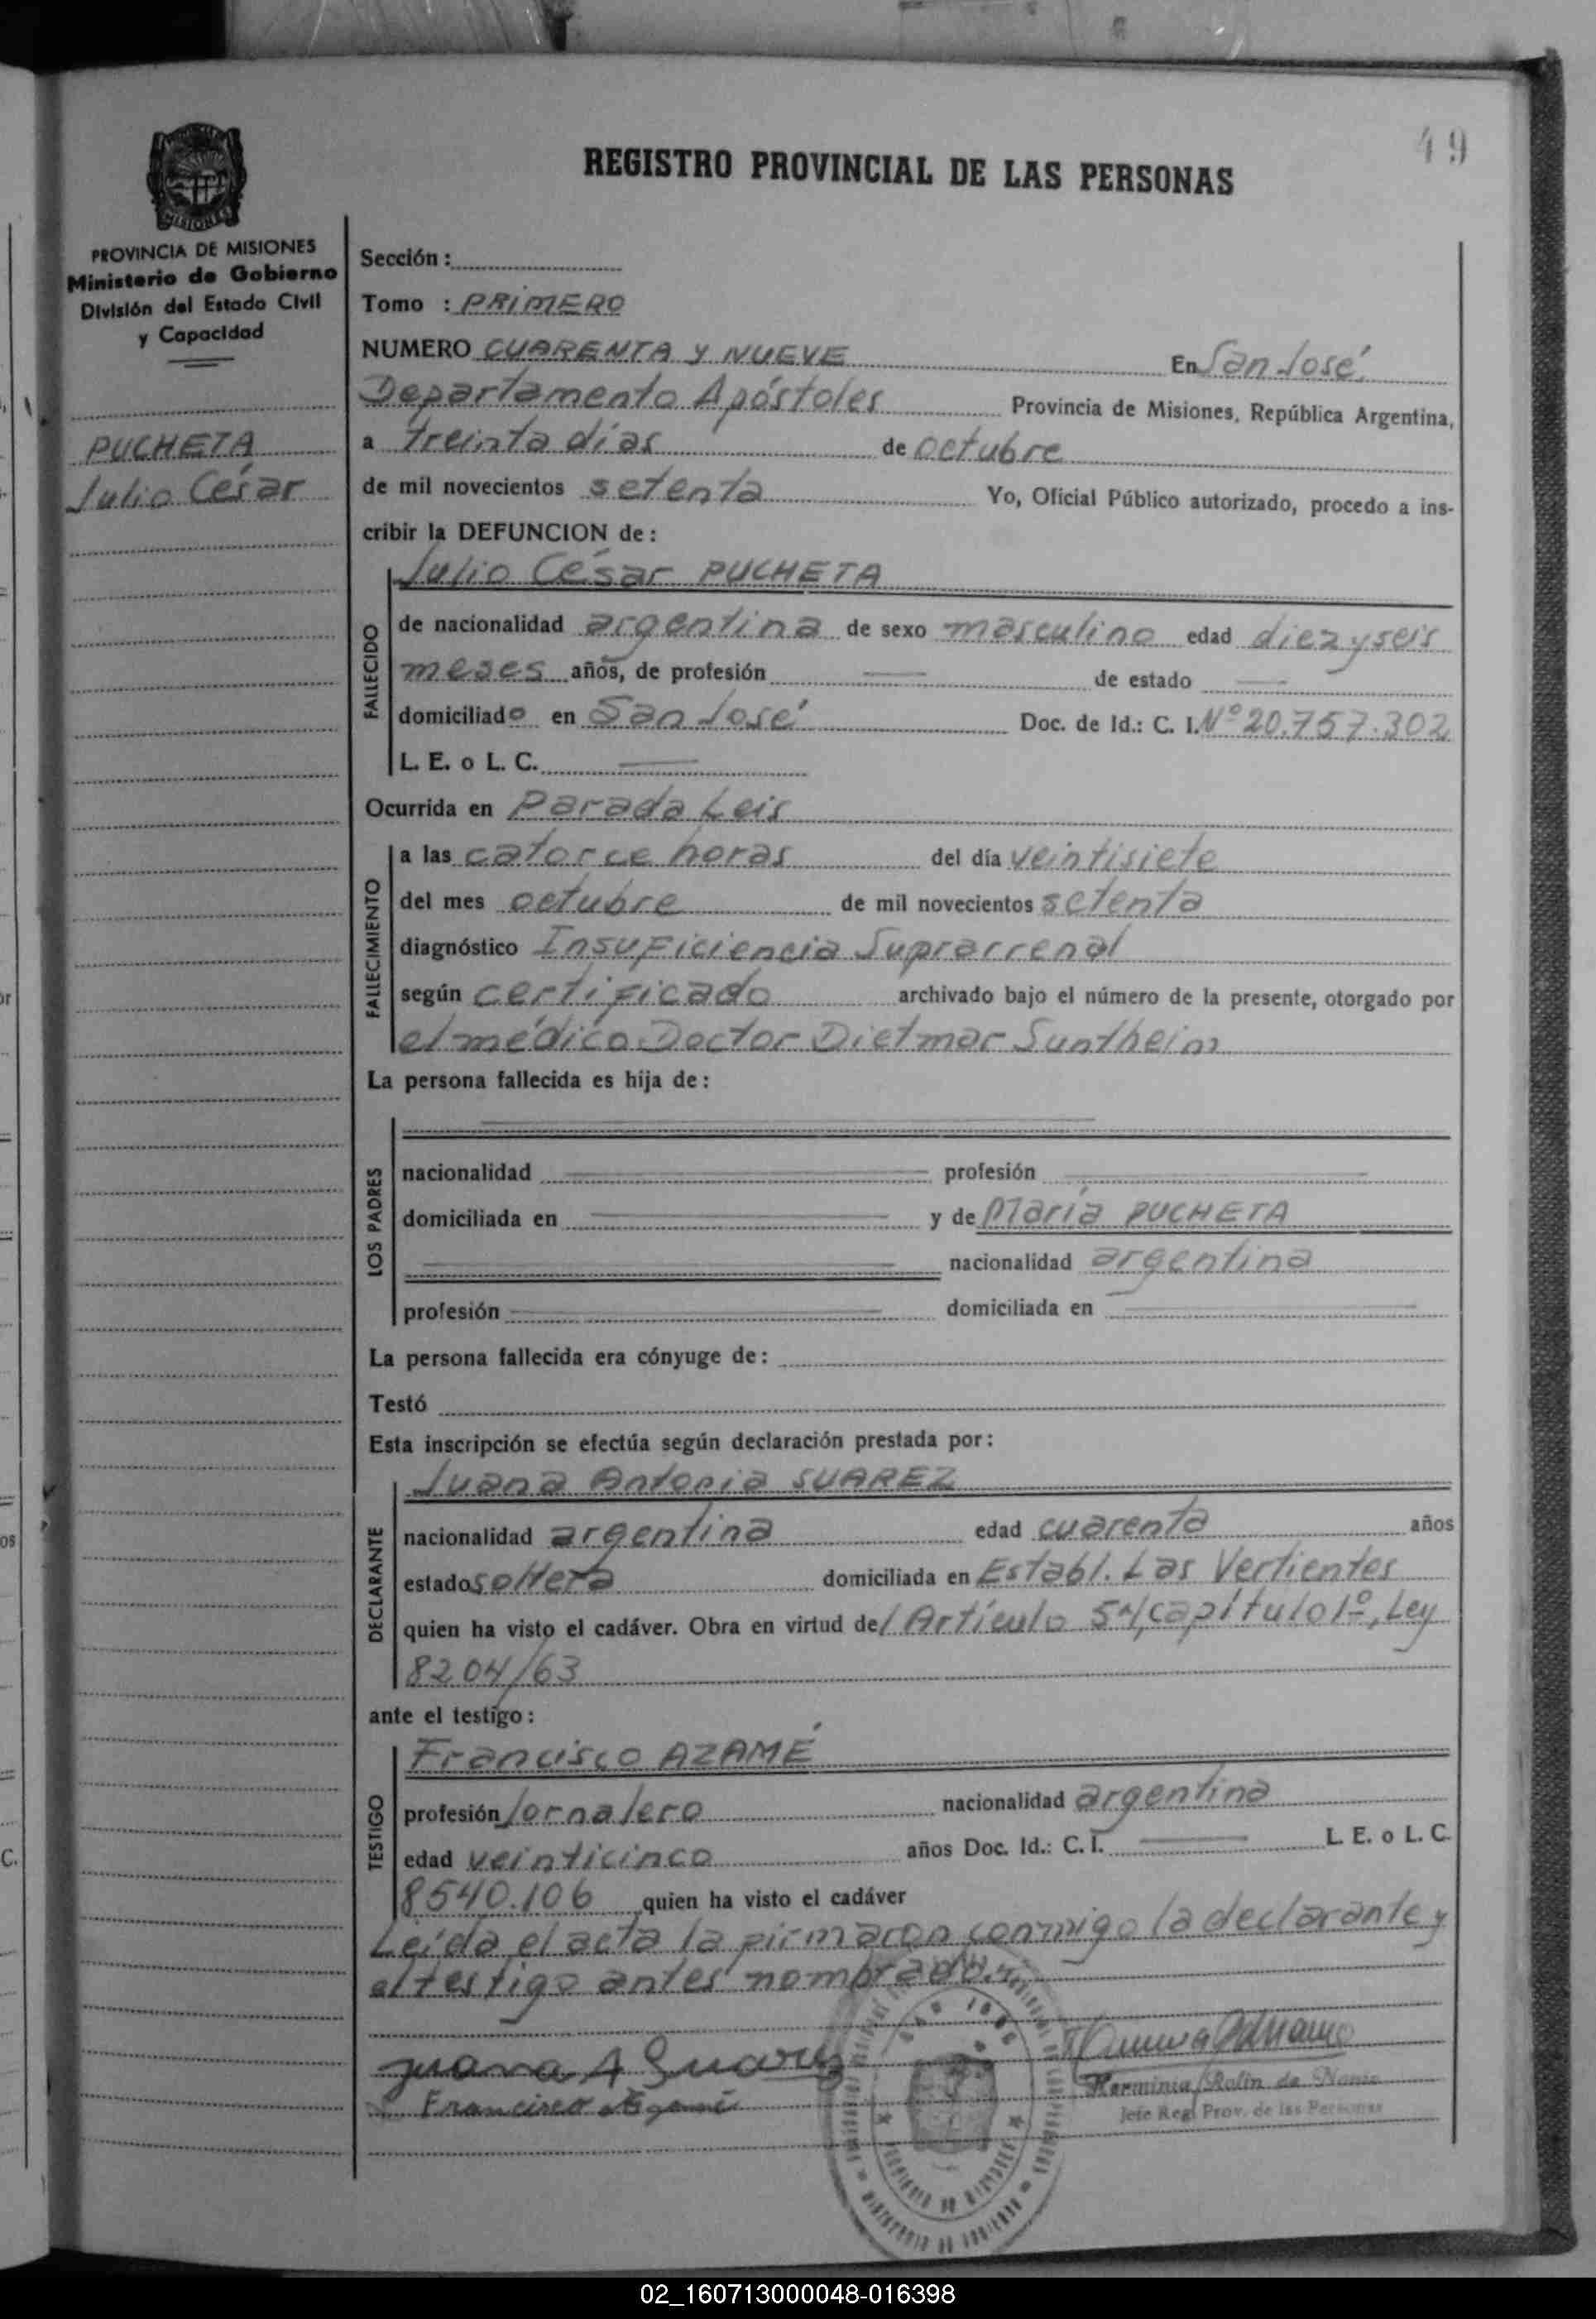 49
REGISTRO PROVINCIAL DE LAS PERSONAS
MISIONES
PROVINCIA DE MISIONES
Ministerio de Gobierno
División del Estado Civil
y Capacidad
PUCHETA
Julio César
Sección :
Tomo : PRIMERO
NUMERO CUARENTA Y NUEVE En San José
Departamento Apóstoles Provincia de Misiones, República Argentina,
a treinta días de octubre
de mil novecientos setenta Yo, Oficial Público autorizado, procedo a ins-
cribir la DEFUNCION de :
Julio César PUCHETA
FALLECIDO
de nacionalidad argentina de sexo masculino edad diez y seis
meses años, de profesión — de estado —
domiciliado en San José Doc. de Id.: C. I. Nº 20.757.302
L. E. o L. C. —
Ocurrida en Parada Leis
FALLECIMIENTO
a las catorce horas del día veintisiete
del mes octubre de mil novecientos setenta
diagnóstico Insuficiencia Suprarrenal
según certificado archivado bajo el número de la presente, otorgado por
el médico Doctor Dietmar Suntheim
La persona fallecida es hija de :
LOS PADRES
nacionalidad — profesión —
domiciliada en — y de María PUCHETA
nacionalidad argentina
profesión — domiciliada en —
La persona fallecida era cónyuge de :
Testó
Esta inscripción se efectúa según declaración prestada por :
Juana Antonia SUAREZ
DECLARANTE
nacionalidad argentina edad cuarenta años
estado soltera domiciliada en Establ. Las Vertientes
quien ha visto el cadáver. Obra en virtud del Artículo 54, capítulo 1º, Ley
8204/63
ante el testigo :
Francisco AZAMÉ
TESTIGO
profesión Jornalero nacionalidad argentina
edad veinticinco años Doc. Id.: C. I. — L. E. o L. C.
8540.106 quien ha visto el cadáver
Leída el acta la firmaron conmigo la declarante y
el testigo antes nombrados.
Juana A Suarez
Francisco Azamé
Herminia Rolin de Nanio
Jefe Reg. Prov. de las Personas
02_160713000048-016398